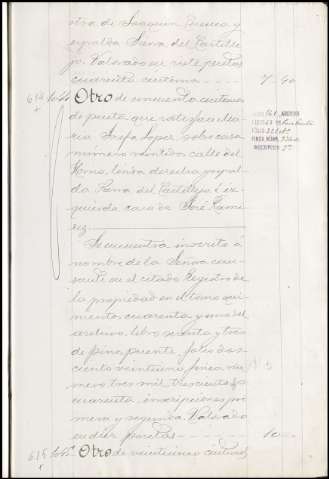 otra de Joaquin Cuenca y
espalda Peña del Castille-
jo. Valorado en siete pesetas
cuarenta centimos 7 40
614 Otro de cincuenta centimos
de peseta que satisface Ma-
ria Josefa Lopez sobre casa
número veintidos calle del
Horno, linda derecha y espal-
da Peña del Castillejo é iz-
quierda casa de José Rami-
rez
Se encuentra inscrito á
nombre de la Señora cau-
sante en el citado Registro de
la propiedad en el tomo qui-
nientos cuarenta y uno del
archivo, libro sesenta y tres
de Pino puente, folio dos-
cientos veintiuno, finca nú-
mero tres mil trescientos
cuarenta, inscripciones pri-
mera y segunda. Valorado
en diez pesetas 10
615 Otro de veinticinco centimos